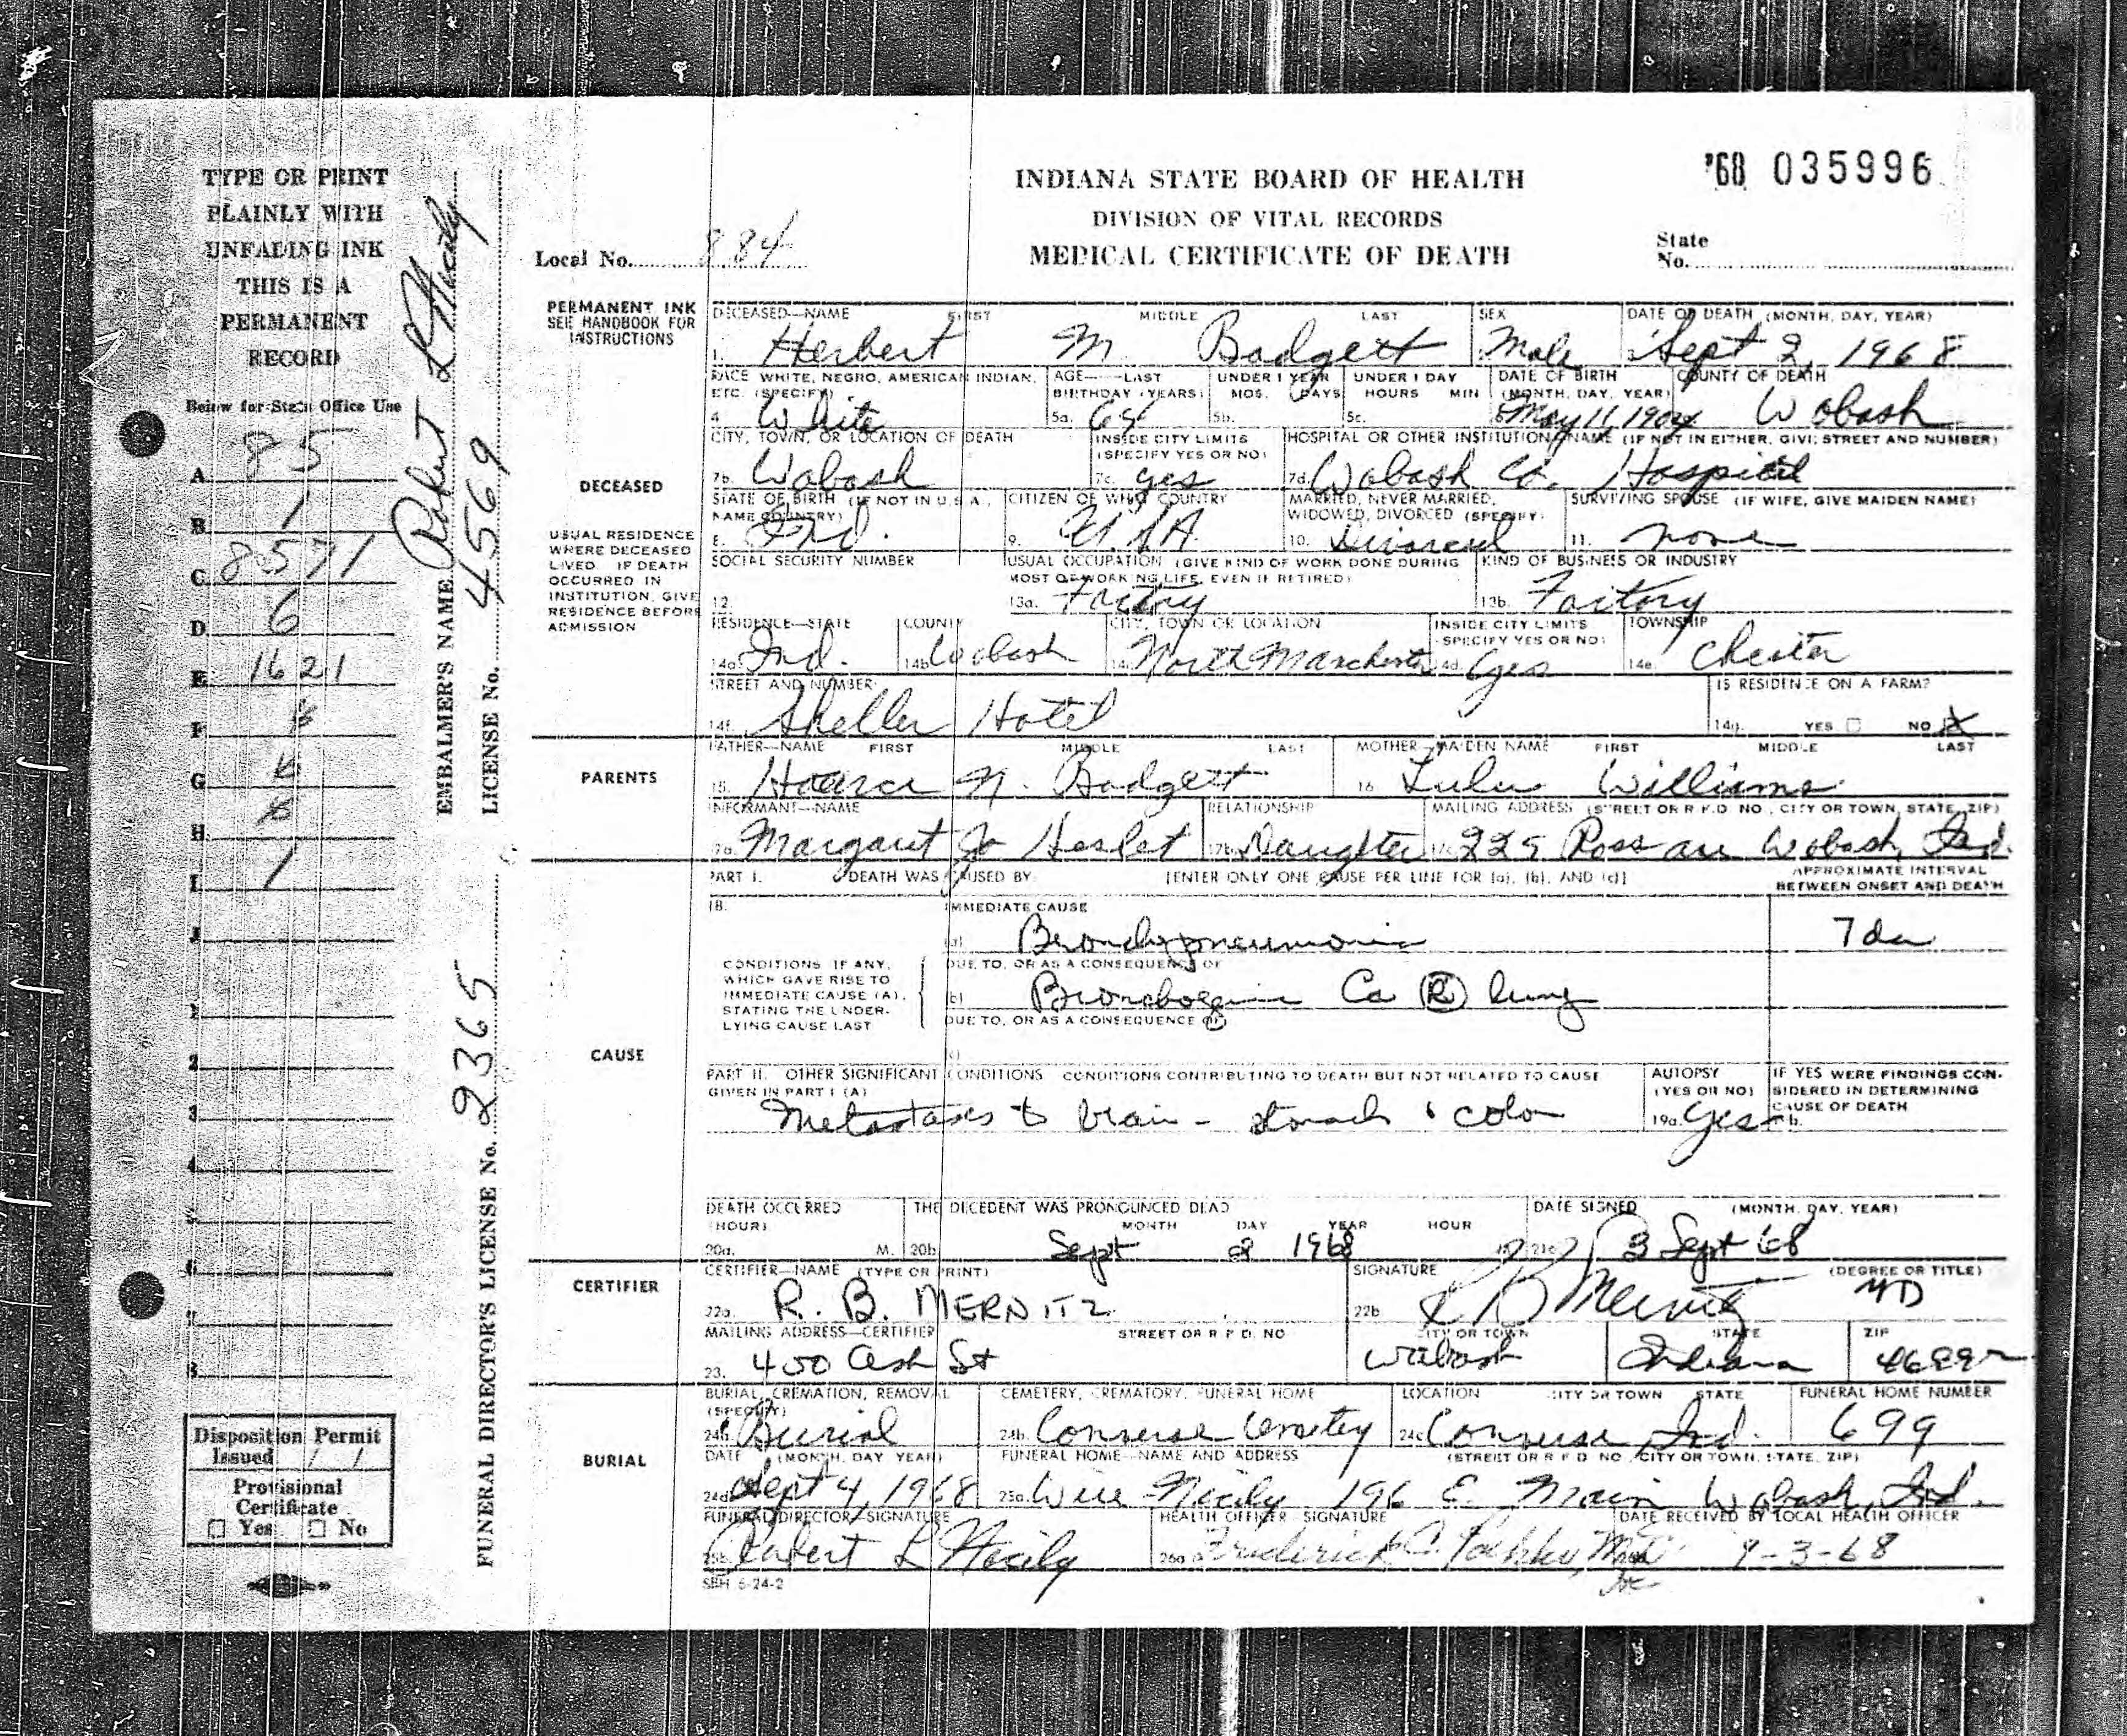 TYPE OR PRINT
PLAINLY WITH
UNFADING INK
THIS IS A
PERMANENT
RECORD
Below for State Office Use
A 85
B 1
C 8571
D 6
E 1621
F
G
H
I 1
J
1
2
3
4
5
6
7
8
Disposition Permit
Issued / /
Provisional
Certificate
☐ Yes ☐ No
EMBALMER'S NAME Robert L Nicely
LICENSE No. 4569
FUNERAL DIRECTOR'S LICENSE No. 2365
'68 035996
INDIANA STATE BOARD OF HEALTH
DIVISION OF VITAL RECORDS
MEDICAL CERTIFICATE OF DEATH
Local No. 884
State
No.
PERMANENT INK
SEE HANDBOOK FOR
INSTRUCTIONS
DECEASED—NAME FIRST MIDDLE LAST SEX DATE OF DEATH (MONTH, DAY, YEAR)
1. Herbert M Badgett Male Sept 2, 1968
RACE WHITE, NEGRO, AMERICAN INDIAN, AGE—LAST UNDER 1 YEAR UNDER 1 DAY DATE OF BIRTH COUNTY OF DEATH
ETC. (SPECIFY) BIRTHDAY (YEARS) MOS. DAYS HOURS MIN (MONTH, DAY, YEAR)
4. White 5a. 64 5b. 5c. 6. May 11, 1904 Wabash
CITY, TOWN, OR LOCATION OF DEATH INSIDE CITY LIMITS HOSPITAL OR OTHER INSTITUTION—NAME (IF NOT IN EITHER, GIVE STREET AND NUMBER)
(SPECIFY YES OR NO)
7b. Wabash 7c. yes 7d. Wabash Co. Hospital
DECEASED
STATE OF BIRTH (IF NOT IN U.S.A., CITIZEN OF WHAT COUNTRY MARRIED, NEVER MARRIED, SURVIVING SPOUSE (IF WIFE, GIVE MAIDEN NAME)
NAME COUNTRY) WIDOWED, DIVORCED (SPECIFY)
8. Ind. 9. USA 10. Divorced 11. none
USUAL RESIDENCE
WHERE DECEASED
LIVED IF DEATH
OCCURRED IN
INSTITUTION, GIVE
RESIDENCE BEFORE
ADMISSION
SOCIAL SECURITY NUMBER USUAL OCCUPATION (GIVE KIND OF WORK DONE DURING KIND OF BUSINESS OR INDUSTRY
MOST OF WORKING LIFE, EVEN IF RETIRED)
12. 13a. Factory 13b. Factory
RESIDENCE—STATE COUNTY CITY, TOWN OR LOCATION INSIDE CITY LIMITS TOWNSHIP
(SPECIFY YES OR NO)
14a. Ind. 14b. Wabash 14c. North Manchester 14d. yes 14e. Chester
STREET AND NUMBER IS RESIDENCE ON A FARM?
14f. Sheller Hotel 14g. YES ☐ NO ☒
PARENTS
FATHER—NAME FIRST MIDDLE LAST MOTHER—MAIDEN NAME FIRST MIDDLE LAST
15. N. Badgett 16. Lulu Williams
INFORMANT—NAME RELATIONSHIP MAILING ADDRESS (STREET OR R.F.D. NO., CITY OR TOWN, STATE, ZIP)
17a. Margaret Jo Heslet 17b. Daughter 17c. 225 Ross ave Wabash, Ind.
PART I. DEATH WAS CAUSED BY: [ENTER ONLY ONE CAUSE PER LINE FOR (a), (b), AND (c)] APPROXIMATE INTERVAL
BETWEEN ONSET AND DEATH
CAUSE
18. IMMEDIATE CAUSE
(a) Bronchopneumonia 7 da
CONDITIONS IF ANY,
WHICH GAVE RISE TO
IMMEDIATE CAUSE (A),
STATING THE UNDER-
LYING CAUSE LAST
DUE TO, OR AS A CONSEQUENCE OF
(b) Bronchogenic Ca Ⓡ lung
DUE TO, OR AS A CONSEQUENCE OF
(c)
PART II. OTHER SIGNIFICANT CONDITIONS CONDITIONS CONTRIBUTING TO DEATH BUT NOT RELATED TO CAUSE AUTOPSY IF YES WERE FINDINGS CON-
GIVEN IN PART I (A) (YES OR NO) SIDERED IN DETERMINING
CAUSE OF DEATH
Metastases to brain - stomach & colon 19a. yes b.
DEATH OCCURRED THE DECEDENT WAS PRONOUNCED DEAD DATE SIGNED (MONTH, DAY, YEAR)
(HOUR) MONTH DAY YEAR HOUR
20a. M. 20b. Sept 2 1968 21c. 3 Sept 68
CERTIFIER
CERTIFIER—NAME (TYPE OR PRINT) SIGNATURE (DEGREE OR TITLE)
22a. R. B. MERNITZ 22b. R B Mernitz MD
MAILING ADDRESS—CERTIFIER STREET OR R.F.D. NO CITY OR TOWN STATE ZIP
23. 400 Ash St Wabash Indiana 46992
BURIAL
BURIAL, CREMATION, REMOVAL CEMETERY, CREMATORY, FUNERAL HOME LOCATION CITY OR TOWN STATE FUNERAL HOME NUMBER
(SPECIFY)
24a. Burial 24b. Converse Cemetery 24c. Converse, Ind. 699
DATE (MONTH, DAY YEAR) FUNERAL HOME—NAME AND ADDRESS (STREET OR R.F.D. NO., CITY OR TOWN, STATE, ZIP)
24d. Sept 4, 1968 25a. Nicely 196 E. Main Wabash, Ind.
FUNERAL DIRECTOR—SIGNATURE HEALTH OFFICER—SIGNATURE DATE RECEIVED BY LOCAL HEALTH OFFICER
25b. Robert L Nicely 26a. Frederick 9-3-68
SBH 6-24-2